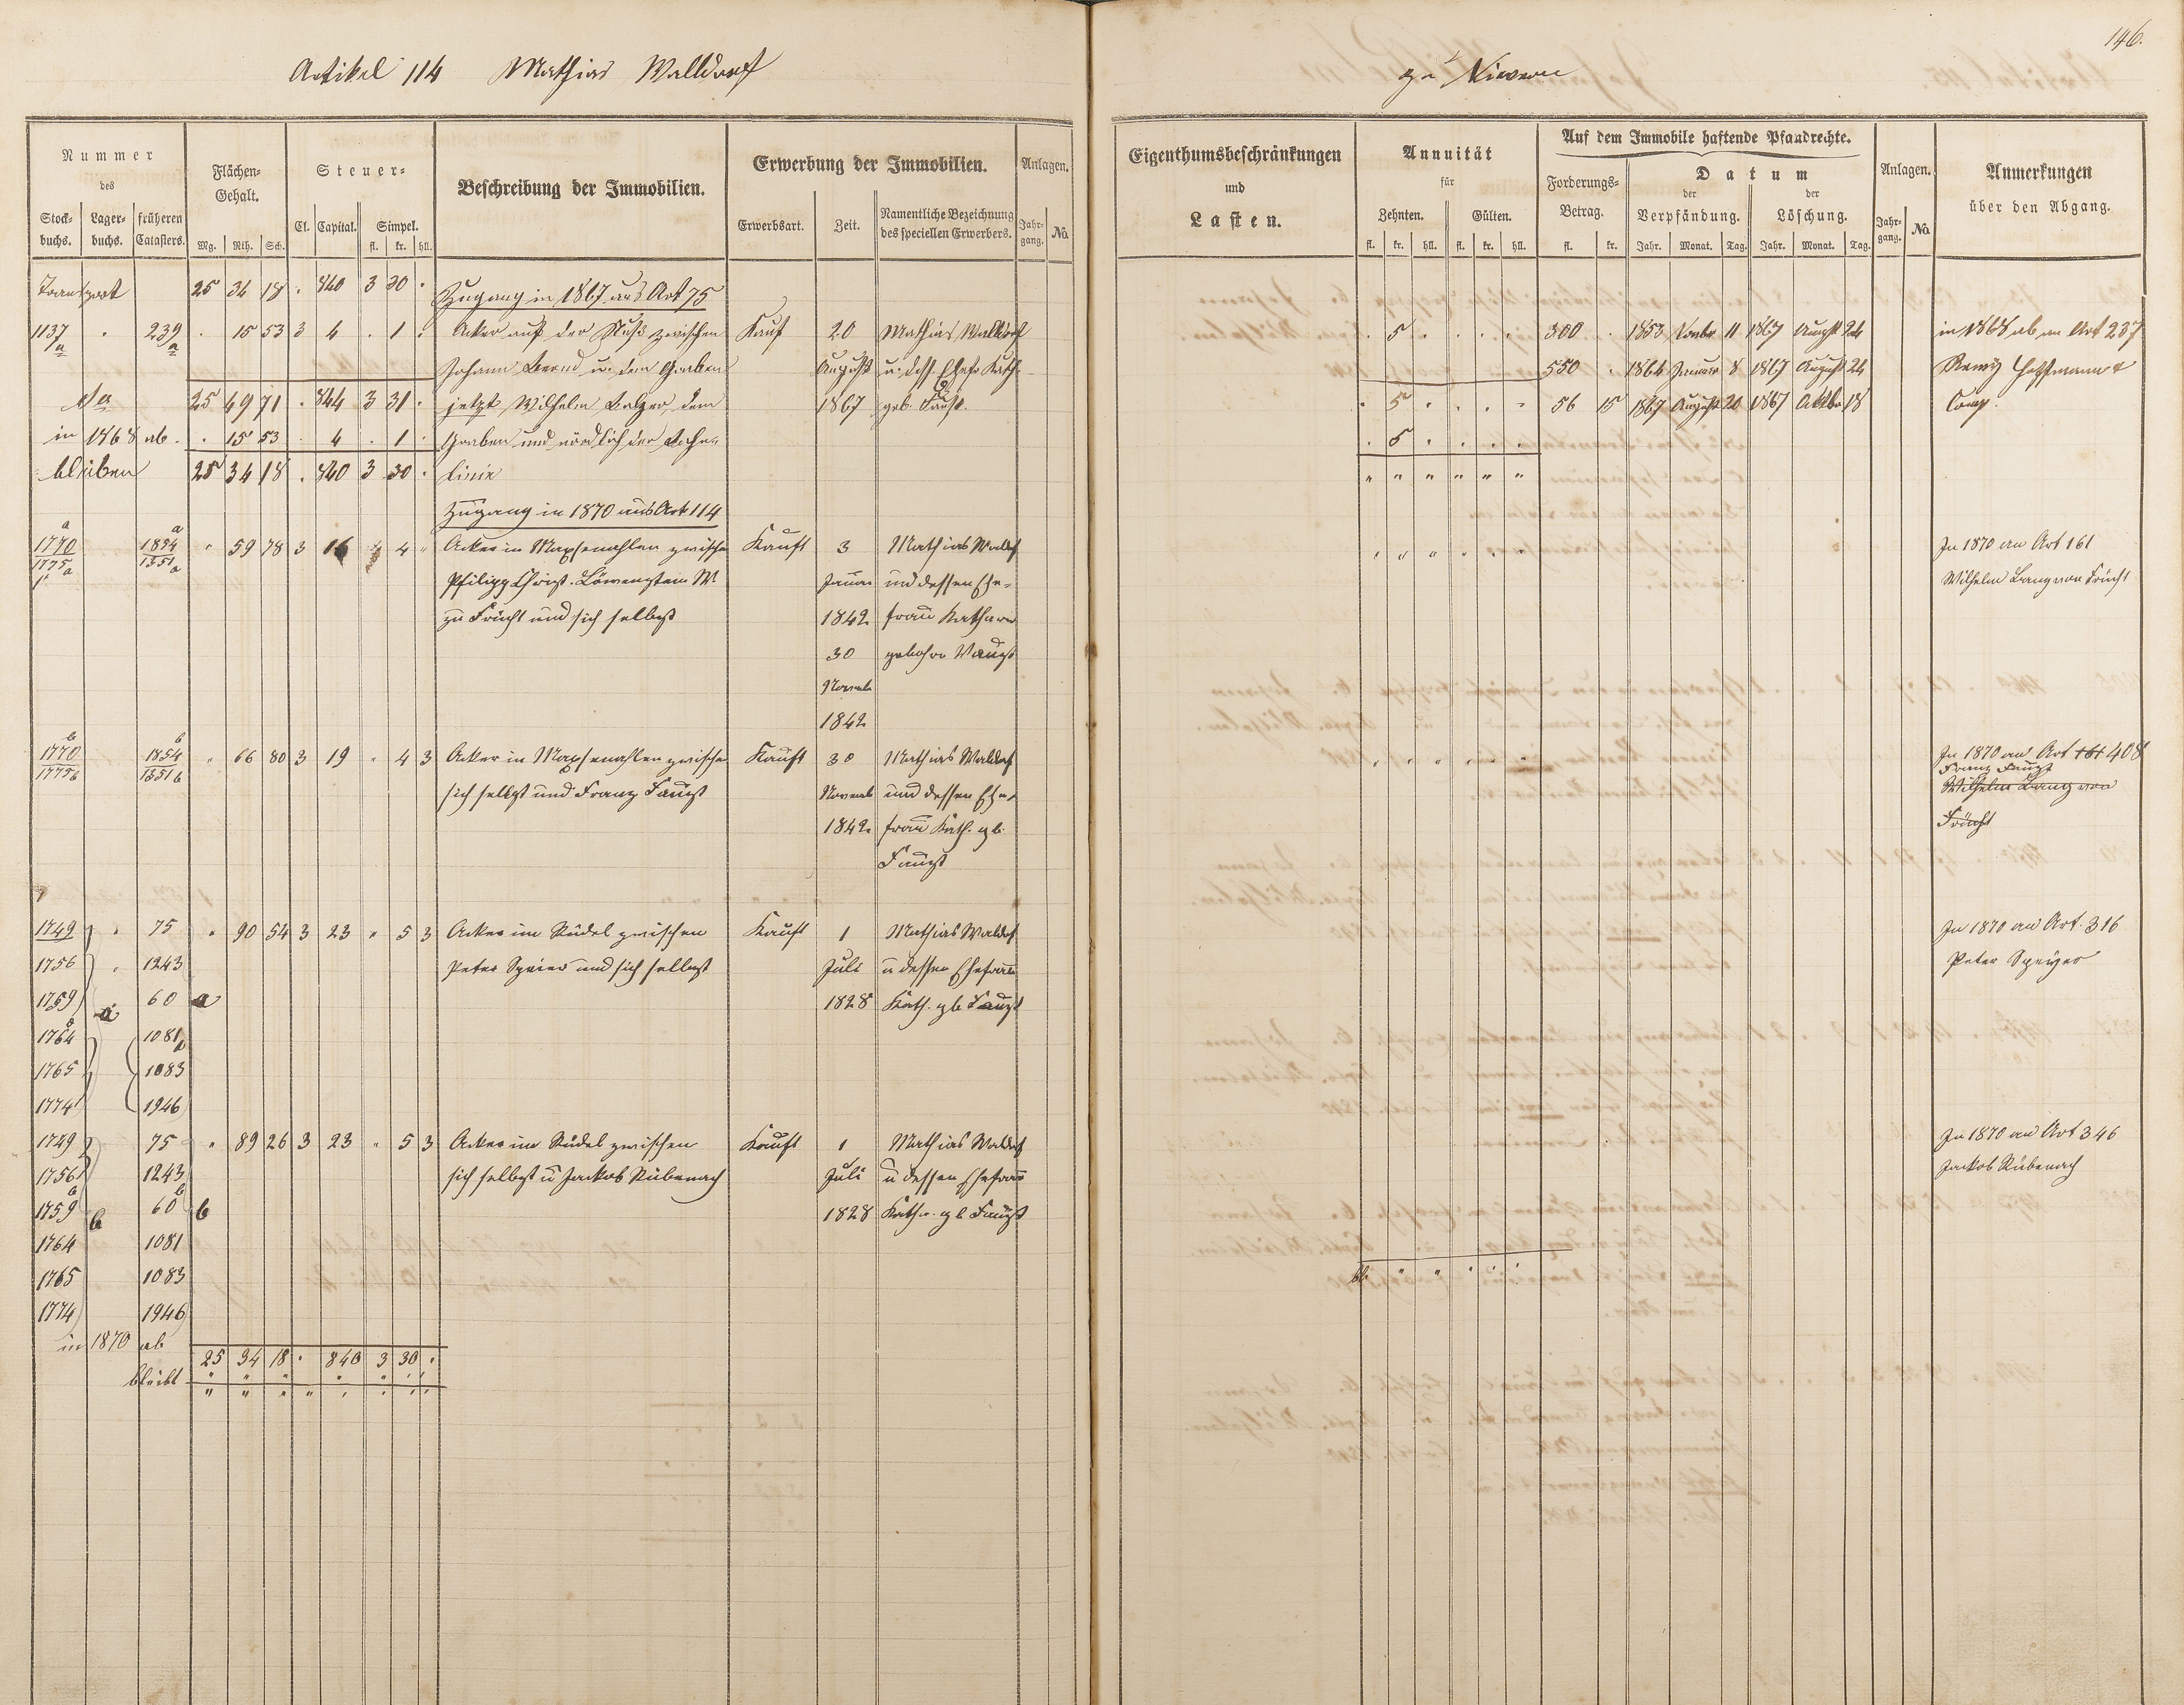 146.
Artikel 114 Mathias Walldorf
zu Nievern
Nummer
des
Stock-
buchs.
Lager-
buchs.
früheren
Catasters.
Flächen-
Gehalt.
Mg. Rth. Sch.
Steuer-
Cl. Capital. Simpel.
fl. kr. hll.
Beschreibung der Immobilien.
Erwerbung der Immobilien.
Erwerbsart. Zeit.
Namentliche Bezeichnung
des speciellen Erwerbers.
Anlagen.
Jahr-
gang. No
Eigenthumsbeschränkungen
und
Lasten.
Annuität
für
Zehnten. Gülten.
fl. kr. hll. fl. kr. hll.
Auf dem Immobile haftende Pfandrechte.
Forderungs-
Betrag.
fl. kr.
Datum
der der
Verpfändung. Löschung.
Jahr. Monat. Tag. Jahr. Monat. Tag.
Anlagen.
Jahr-
gang. No
Anmerkungen
über den Abgang.
Transport 25 34 18 . 840 3 30 . Zugang in 1867 aus Art 75
1137 a . 239 a . 15 53 3 4 . 1 . Acker auf der zwischen Kauf 20 Mathias Walldorf . 5 . . . . 300 . 1853 Novbr 11 1867 August 24 in 1868 ab an Art 237
Johann Bernd u. dem Graben August u. dess. Ehefr Kath. 550 . 1864 Januar 8 1867 August 24 Remy Hoffmann &
25 49 71 . 844 3 31 . jetzt Wilhelm Balzer, dem 1867 geb. Faust. . 5 . . . . 56 15 1867 August 20 1867 Oktbr 18 Comp.
in 1868 ab . . 15 53 . 4 . 1 . Graben und nördlich der Bahn- . 5 . . . .
bleiben 25 34 18 . 840 3 30 . linie " " " " " "
Zugang in 1870 aus Art 114
1770 a 1854 a " 59 78 3 16 4 " Acker in zwischen Kauft 3 Mathias Walldf " " " " " " In 1870 an Art 161
1775 a 1351 a Philipp Christ. Löwenstein Januar und dessen Ehe- Wilhelm Lang von Frücht
zu Frücht und sich selbst 1842 frau Katharin
30 geborn
Novemb
1842
1770 b 1854 b " 66 80 3 19 " 4 3 Acker in zwischen Kauft 30 Mathias Walldf " " " " " " In 1870 an Art 161 408
1775 b 1351 b sich selbst und Franz Faust Novemb und dessen Ehe- Franz Faust
Wilhelm Lang von
1842 frau Kath. gb. Frücht
Faust
1749 . 75 " 90 54 3 23 " 5 3 Acker im Rüdel zwischen Kauft 1 Mathias Walldf In 1870 an Art. 316
1756 . 1243 Peter Speier und sich selbst Juli u dessen Ehefrau Peter Speyer
1759 a 60 a 1828 Kath. gb Faust
1764 1081
1765 1083
1774 1946
1749 75 " 89 26 3 23 " 5 3 Acker im Rüdel zwischen Kauft 1 Mathias Walldf In 1870 an Art 346
1756 1243 sich selbst u Jackob Rübenach Juli u dessen Ehefrau Jackob Rübenach
1759 b 60 b 1828 Kath. gb Faust
1764 1081
1765 1083 bl. " " " " "
1774 1946
in 1870 ab 25 34 18 . 840 3 30 .
bleibt " " " " " " "
" " " " " " " "